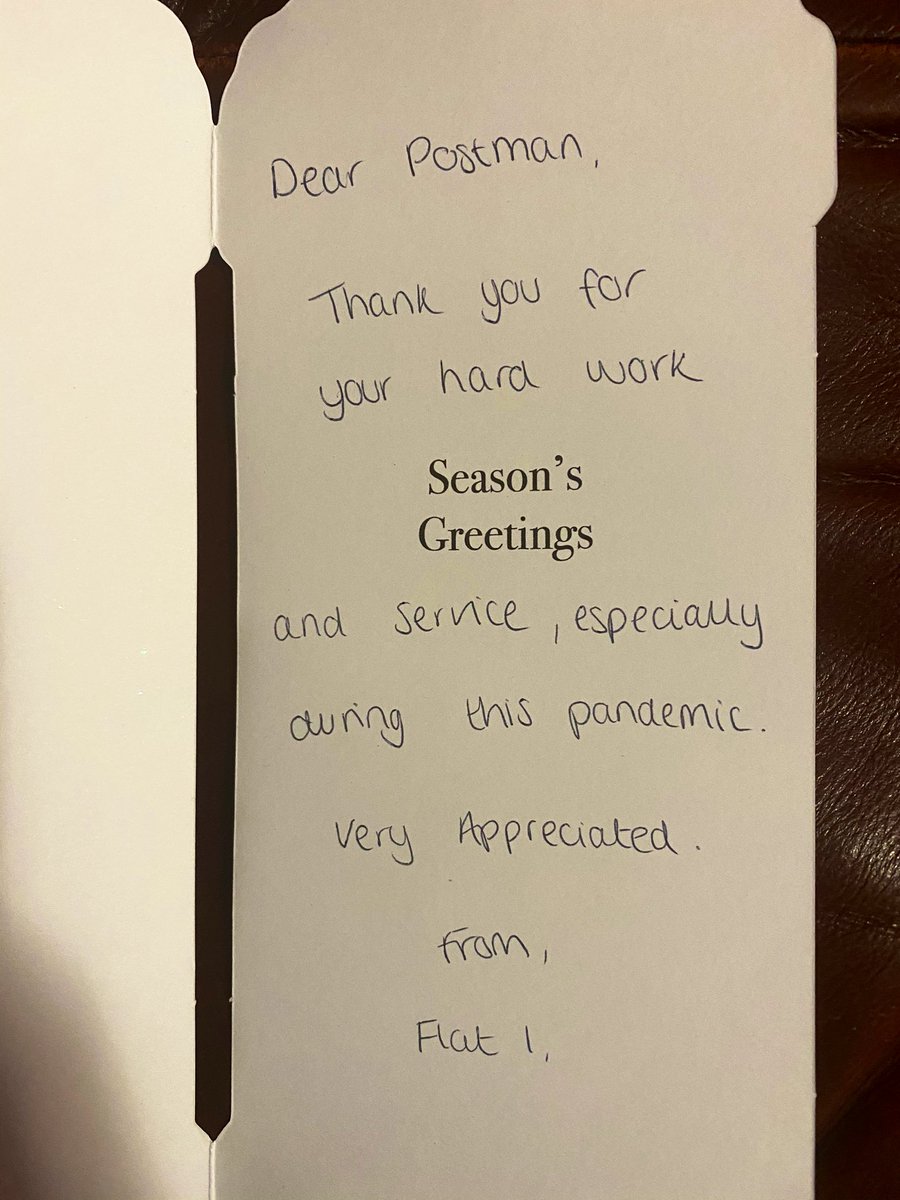 Dear Postman,
Thank you for
your hard work
Season's
Greetings
and service, especially
during this pandemic.
Very Appreciated.
From,
Flat 1,